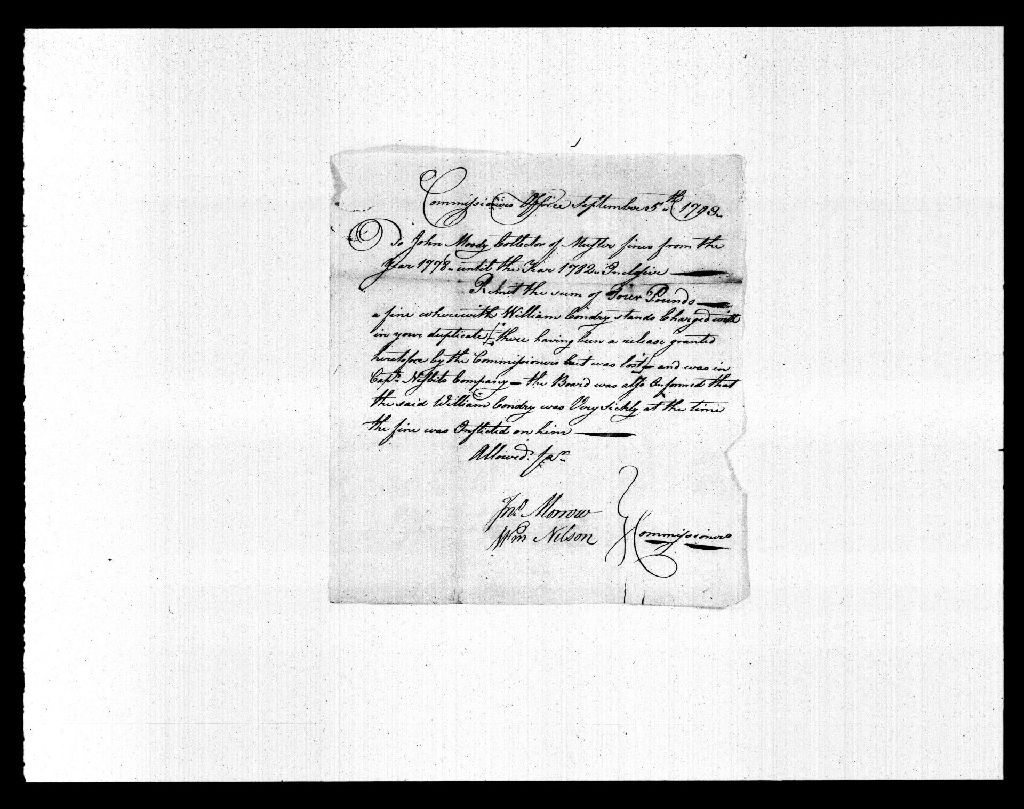 Commissioners Office September 5th 1793
To John Moody Collector of Muster fines from the
Year 1778 untill the Year 1782 Inclusive
Remit the sum of Four Pounds
a fine wherewith William Condry stands Charged with
in your duplicate, there having been a release granted
heretofore by the Commissioners but was lost and was in
Capt. Nisbits Company the Board was also Informed that
the said William Condry was Very sickly at the time
the fine was Inflicted on him
Allowed
Jno. Morrow
Wm Nelson Commissioners